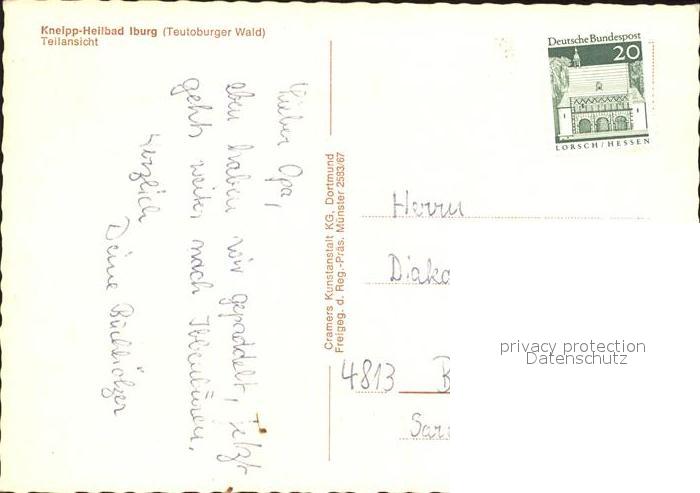 Kneipp-Heilbad Iburg (Teutoburger Wald)
Teilansicht
Lieber Opa,
eben haben wir gepaddelt, jetzt
gehts weiter nach Ibbenbüren.
Herzlich
Deine
Cramers Kunstanstalt KG. Dortmund
Freigeg. d. Reg.-Präs. Münster 2583/67
Deutsche Bundespost
20
LORSCH/HESSEN
Herrn
Diako
4813 B
Sar
privacy protection
Datenschutz